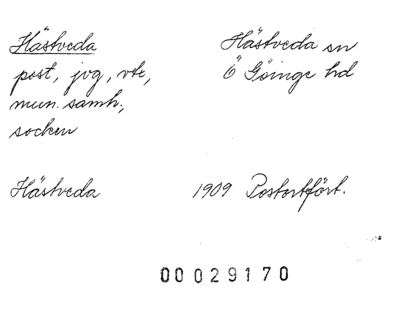 Hästveda
post, jvg, vte,
mun. samh.,
socken
Hästveda sn
Ö Göinge hd
Hästveda 1909 Postortsfört.
00029170